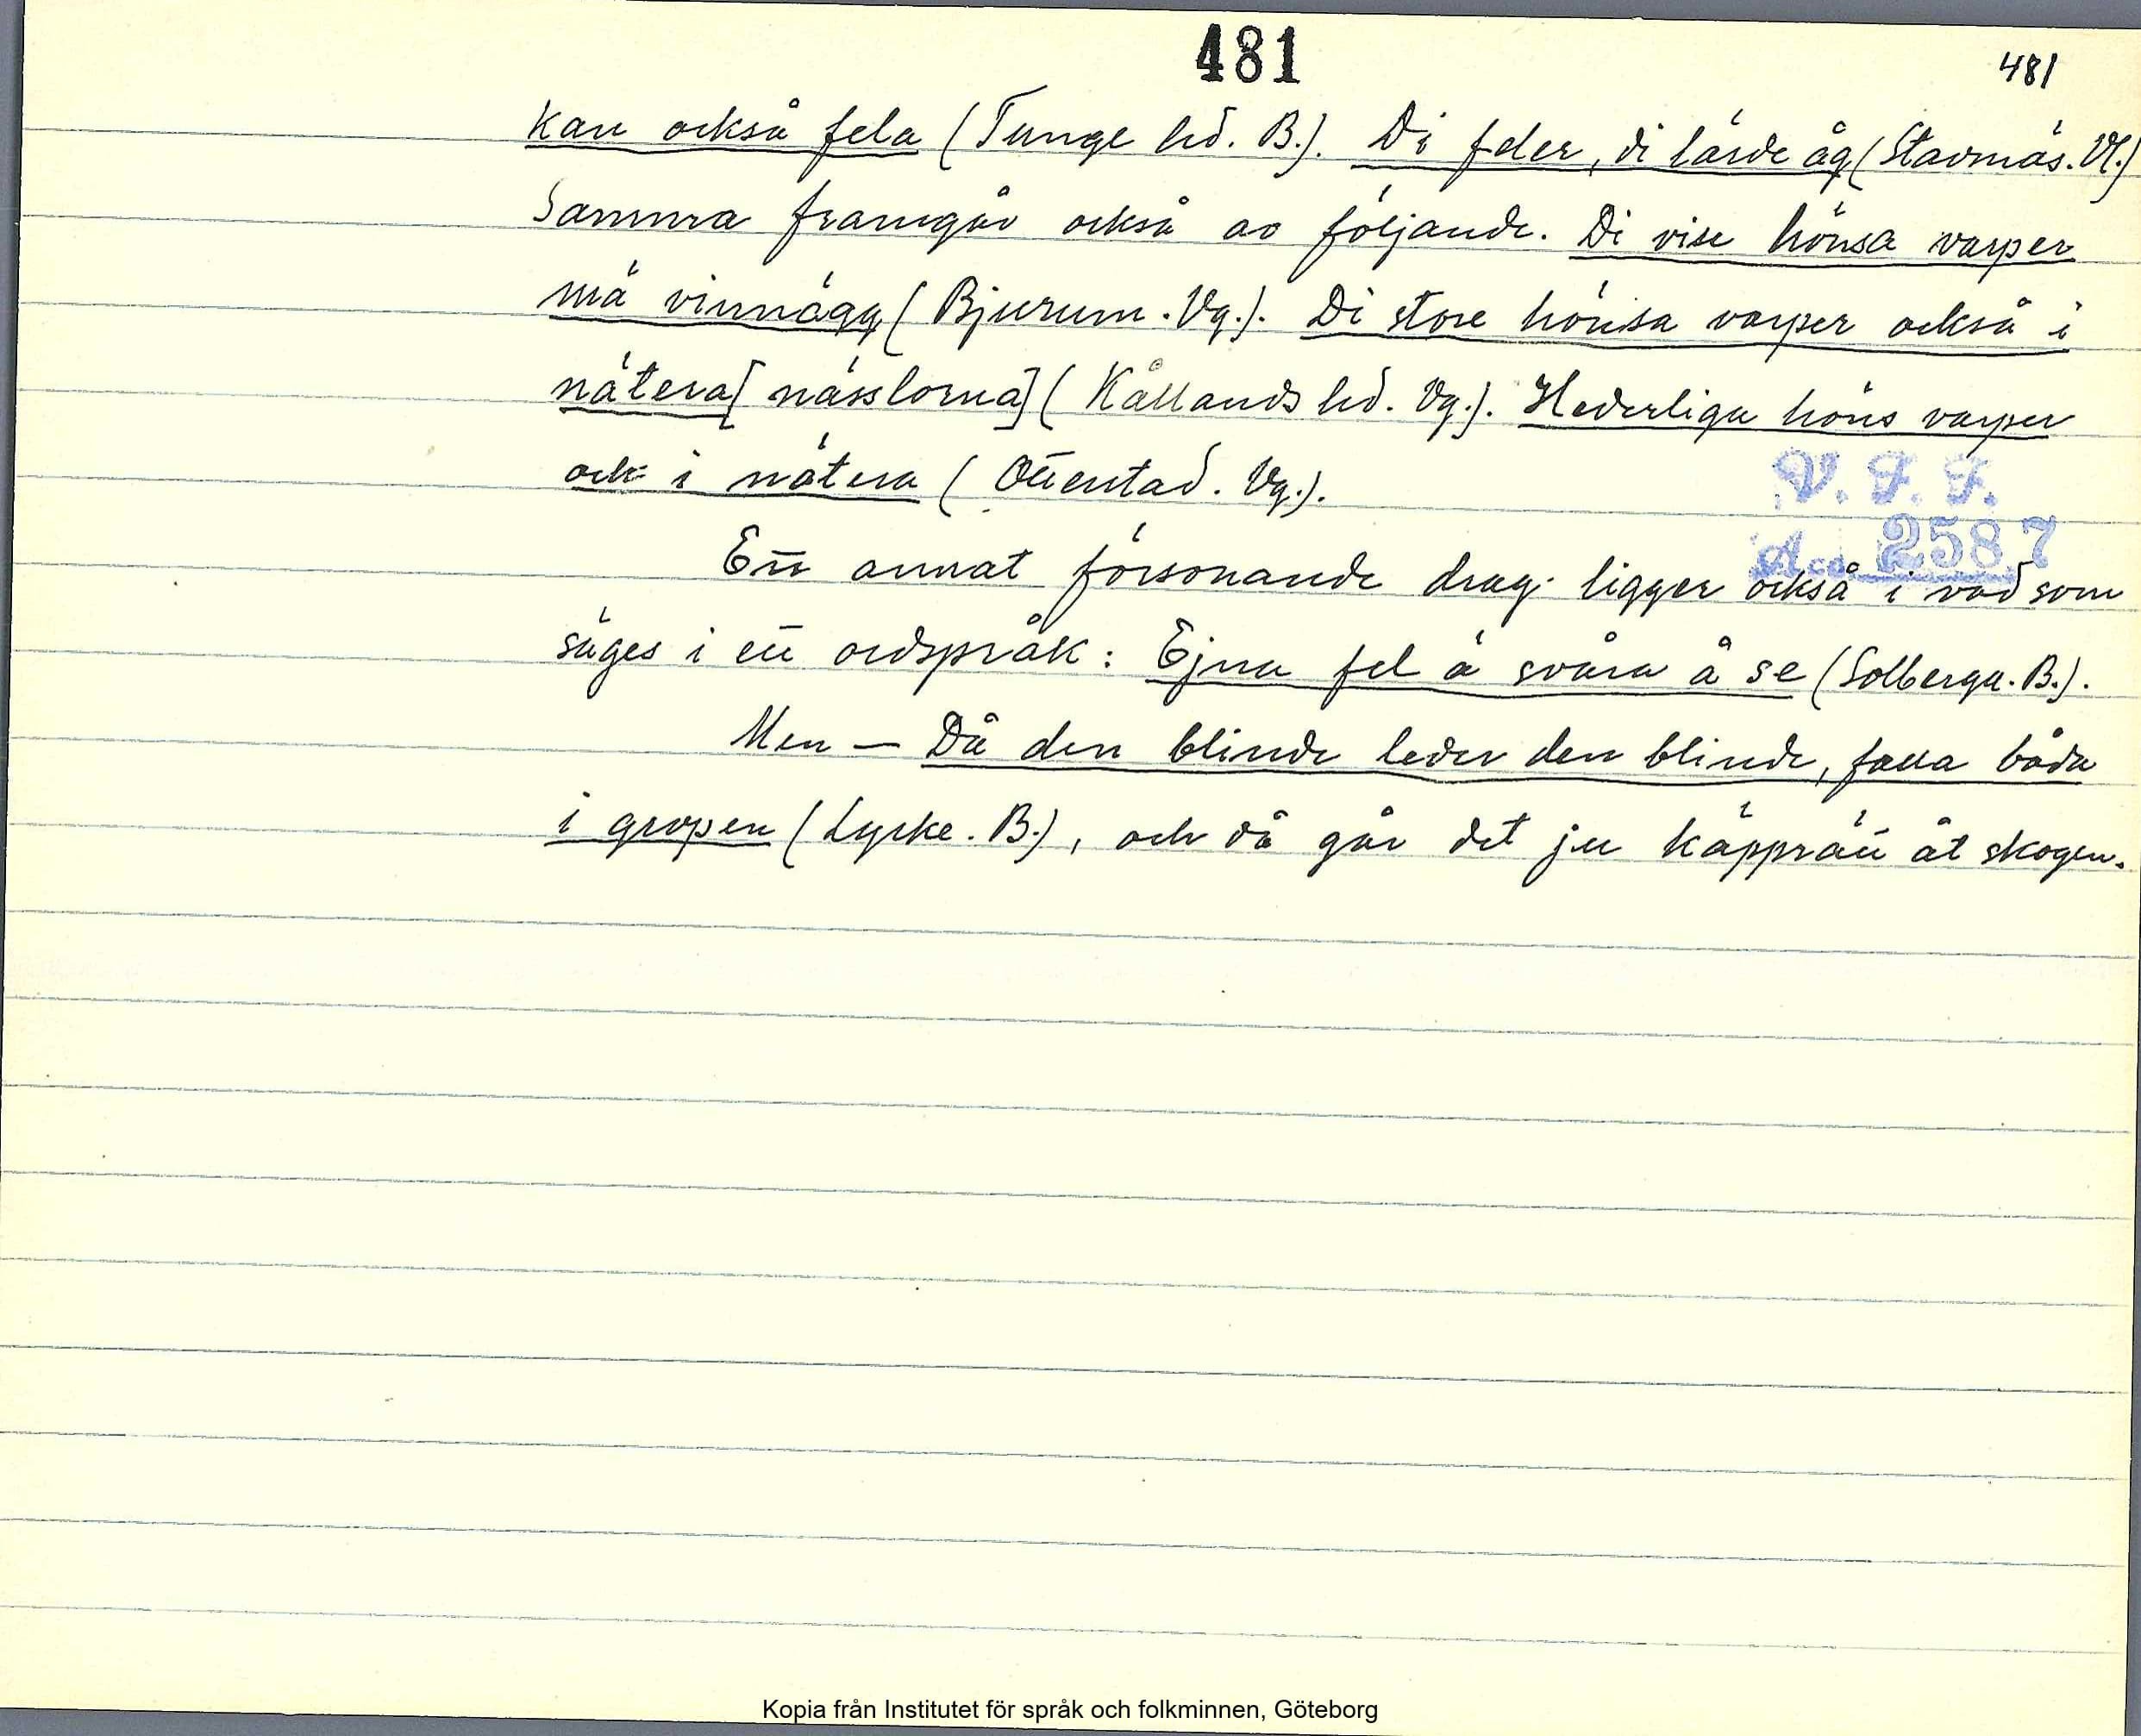 481
481
kan också fela (Tunge hd. B.). Di feler, di lärde åg (Stavnäs. Vl.)
Samma framgår också av följande. Di vise hönsa varper
mä vinnägg (Bjurum. Vg.). Di store hönsa varper också i
nätera [nässlorna] (Kållands hd. Vg.). Hederliga höns varper
ock i nätera (Otterstad. Vg.).
V. F. F.
Acc. 2587
Ett annat försonande drag ligger också i vad som
säges i ett ordspråk: Ejna fel ä svåra å se (Solberga. B.).
Men — Då den blinde leder den blinde, falla båda
i gropen (Lycke. B.), och då går det ju käpprätt åt skogen.
Kopia från Institutet för språk och folkminnen, Göteborg